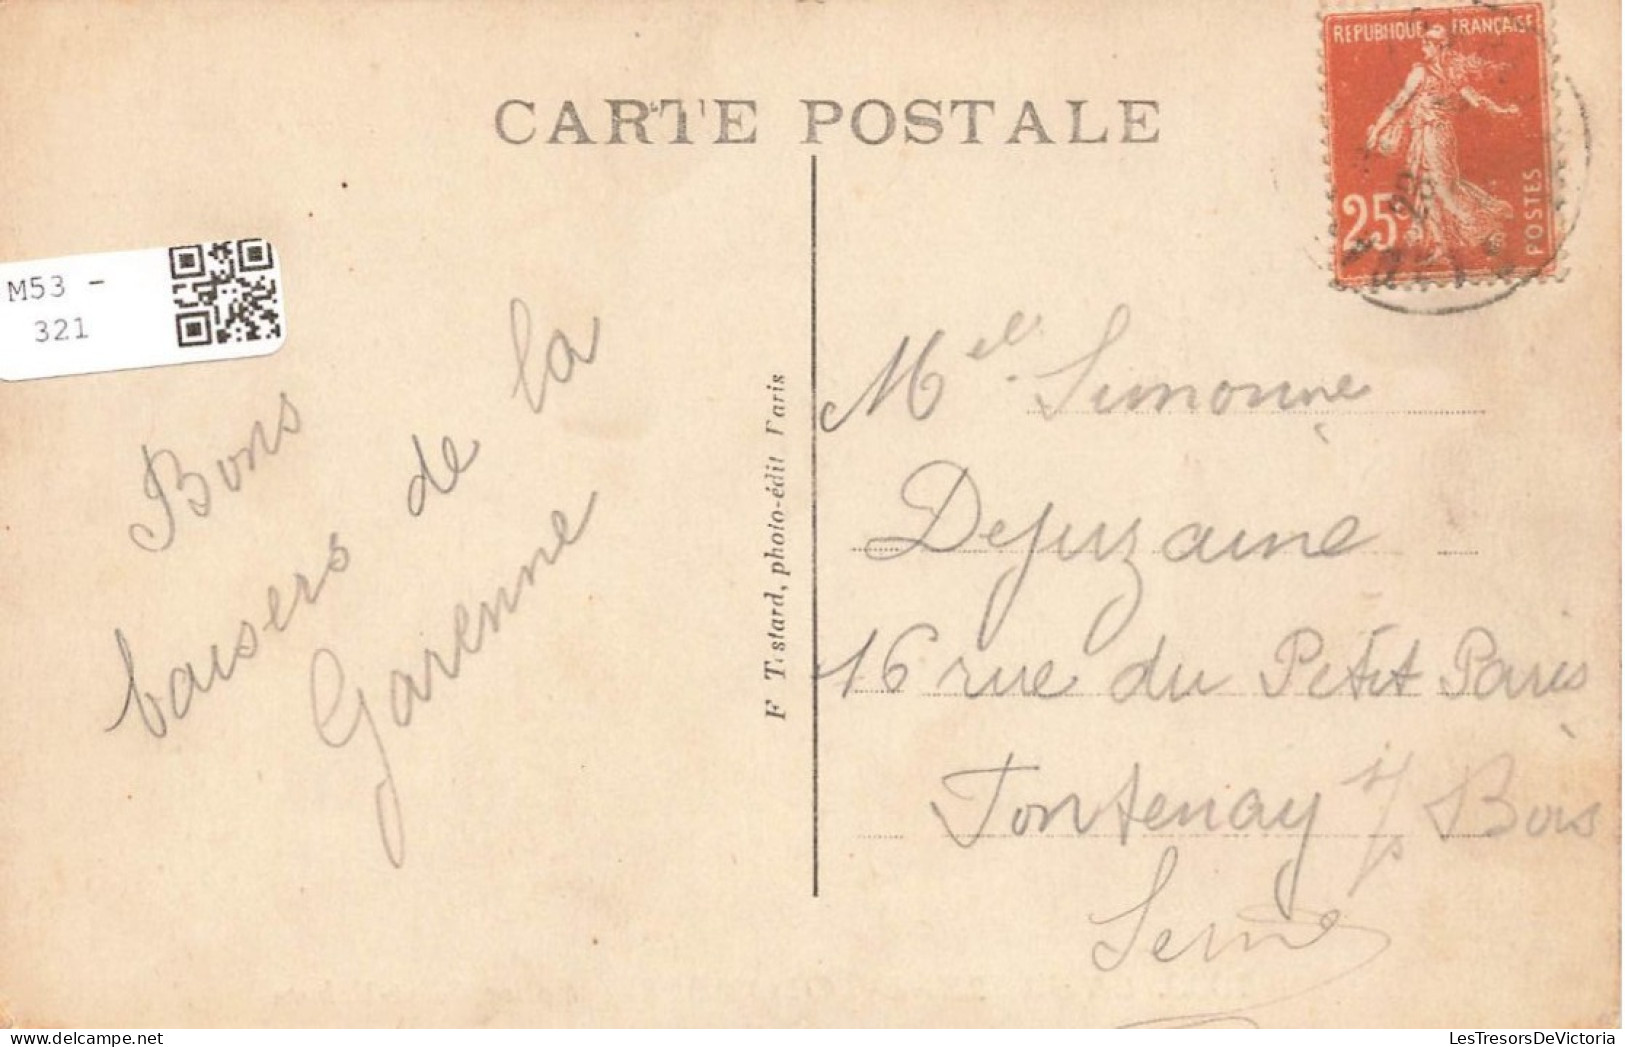 CARTE POSTALE
REPUBLIQUE FRANÇAISE
25c
POSTES
M53 -
321
Bons
baisers de la
Garenne
F Testard, photo-édit Paris
Mel. Simonne
Dejuzaine
16 rue du Petit Paris
Fontenay s/s Bois
Seine
LesTresorsDeVictoria